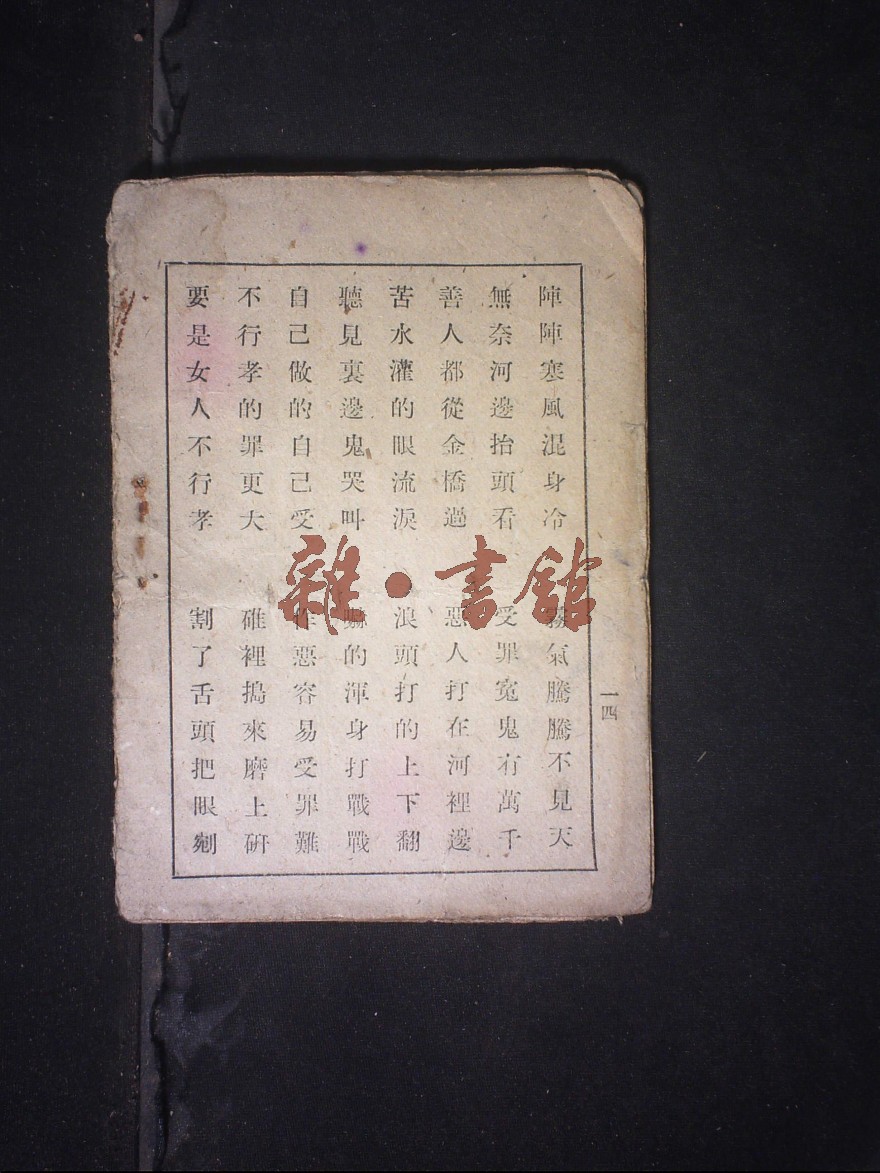 陣陣寒風混身冷 霧氣騰騰不見天
無奈河邊抬頭看 受罪冤鬼有萬千
善人都從金橋過 惡人打在河裡邊
苦水灌的眼流淚 浪頭打的上下翻
聽見裏邊鬼哭叫 嚇的渾身打戰戰
自己做的自己受 作惡容易受罪難
不行孝的罪更大 碓裡搗來磨上研
要是女人不行孝 割了舌頭把眼剜
一四
雜·書館